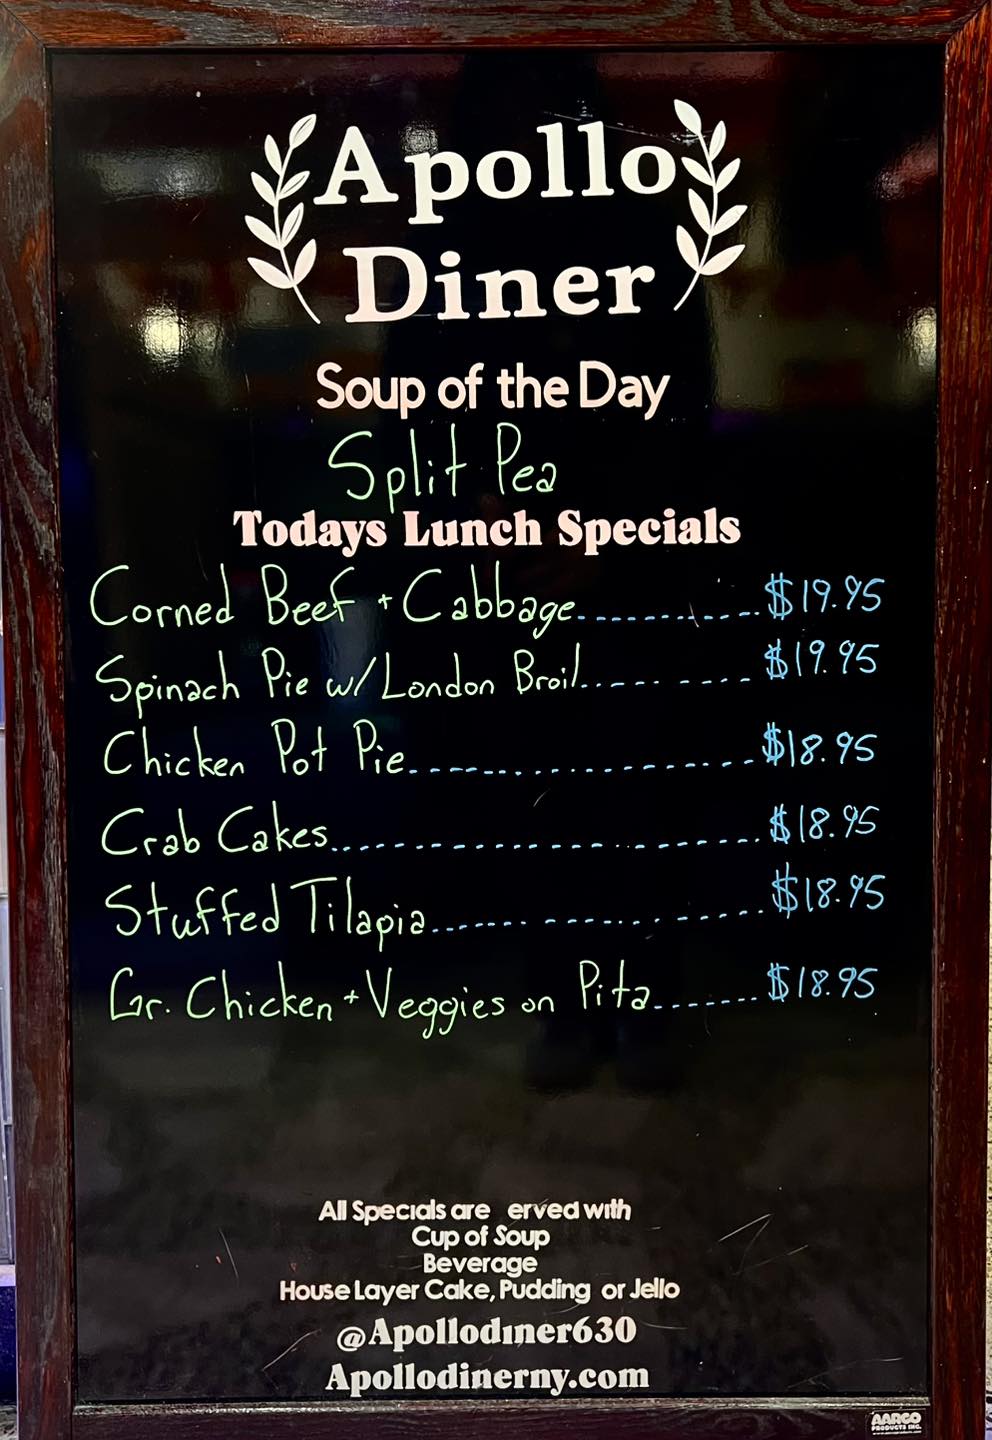 Apollo
Diner
Soup of the Day
Split Pea
Todays Lunch Specials
Corned Beef + Cabbage............$19.95
Spinach Pie w/ London Broil..........$19.95
Chicken Pot Pie......................$18.95
Crab Cakes...........................$18.95
Stuffed Tilapia......................$18.95
Gr. Chicken + Veggies on Pita.......$18.95
All Specials are erved with
Cup of Soup
Beverage
House Layer Cake, Pudding or Jello
@Apollodiner630
Apollodinerny.com
AARCO
PRODUCTS INC.